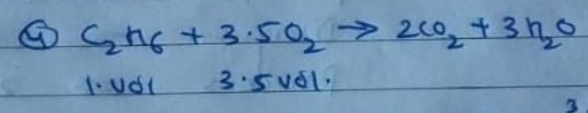 ④ C₂H₆ + 3.5O₂ → 2CO₂ + 3H₂O
1.vol 3.5 vol.
3